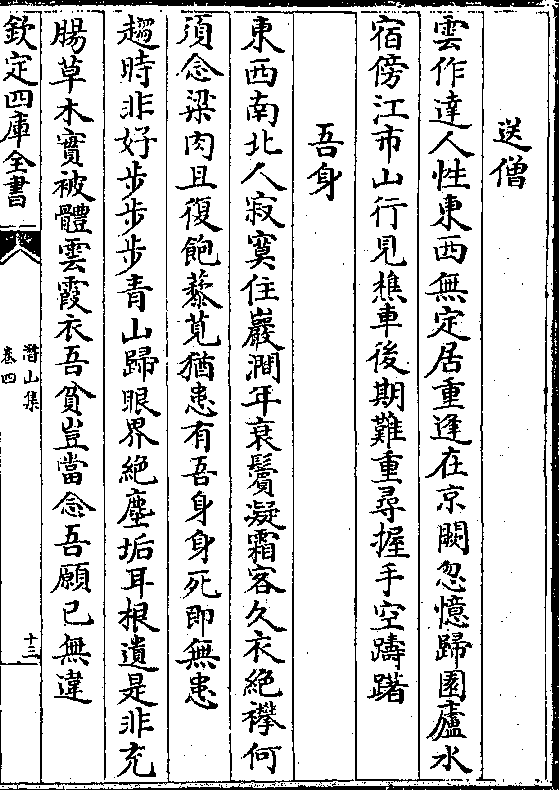 送僧
雲作達人性東西無定居重逢在京闕忽憶歸園廬水
宿傍江市山行見樵車後期難重尋握手空躊躇
吾身
東西南北人寂寞住巖澗年衰鬢凝霜客久衣絶襻何
須念梁肉且復飽藜莧猶患有吾身身死即無患
趨時非好步步步青山歸眼界絶塵垢耳根遺是非充
腸草木實被體雲霞衣吾貧豈當念吾願已無違
欽定四庫全書
潛山集
卷四
十三